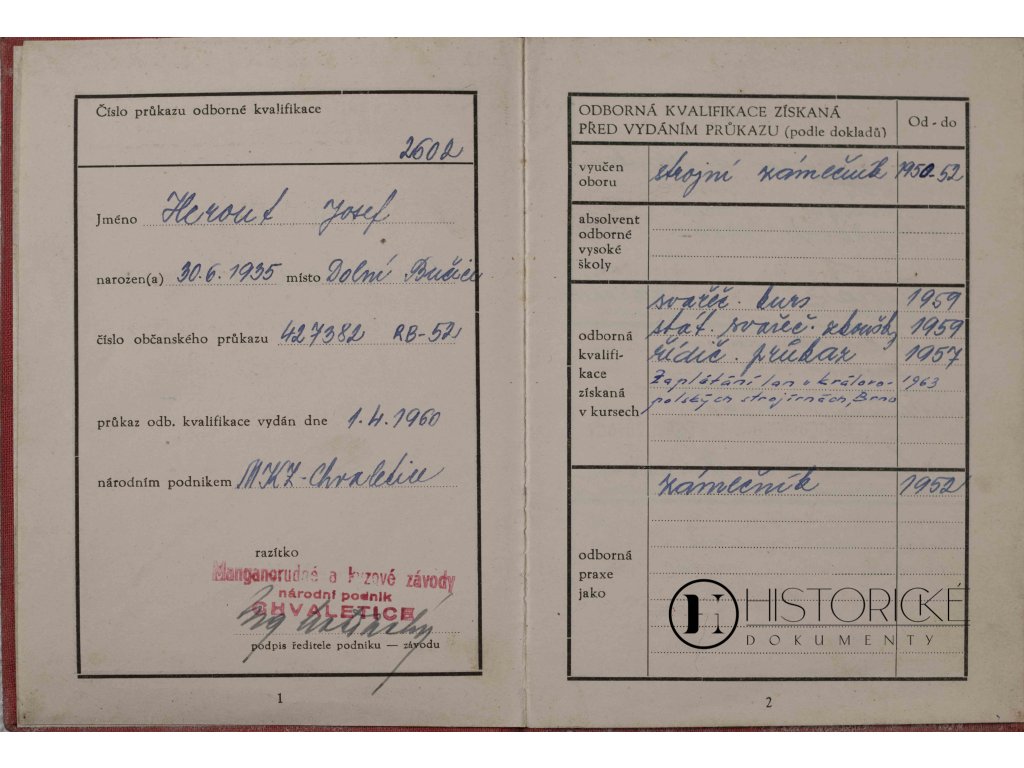 Číslo průkazu odborné kvalifikace
2602
Jméno Herout Josef
narozen(a) 30.6.1935 místo Dolní Bučice
číslo občanského průkazu 427382 RB-52
průkaz odb. kvalifikace vydán dne 1.4.1960
národním podnikem MKZ-Chvaletice
razítko
Manganorudné a kyzové závody
národní podnik
CHVALETICE
podpis ředitele podniku — závodu
1
ODBORNÁ KVALIFIKACE ZÍSKANÁ
PŘED VYDÁNÍM PRŮKAZU (podle dokladů) Od - do
vyučen
oboru
strojní zámečník 1950-52
absolvent
odborné
vysoké
školy
odborná
kvalifi-
kace
získaná
v kursech
svářeč. kurs 1959
stát. svářeč. zkoušky 1959
řidič. průkaz 1957
Zaplétání lan v královo- 1963
polských strojírnách, Brno
odborná
praxe
jako
zámečník 1952
HISTORICKÉ
DOKUMENTY
2